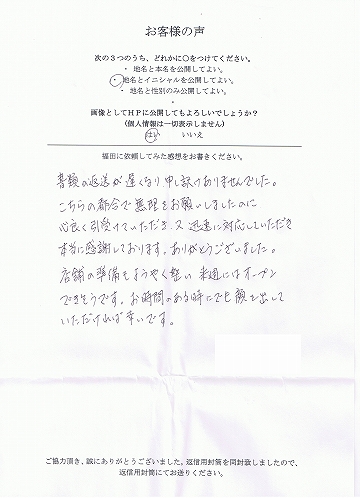 お客様の声
次の３つのうち、どれかに○をつけてください。
・ 地名と本名を公開してよい。
・ 地名とイニシャルを公開してよい。
・ 地名と性別のみ公開してよい。
画像としてＨＰに公開してもよろしいでしょうか？
（個人情報は一切表示しません）
はい　いいえ
福田に依頼してみた感想をお書きください。
書類の返送が遅くなり申し訳ありませんでした。
こちらの都合で無理をお願いしましたのに
心良く引受けていただき、又迅速に対応していただき
本当に感謝しております。ありがとうございました。
店舗の準備もようやく整い 来週にはオープン
できそうです。お時間のある時にでも顔を出して
いただければ幸いです。
ご協力頂き、誠にありがとうございました。返信用封筒を同封致しましたので、
返信用封筒にてお送りください。